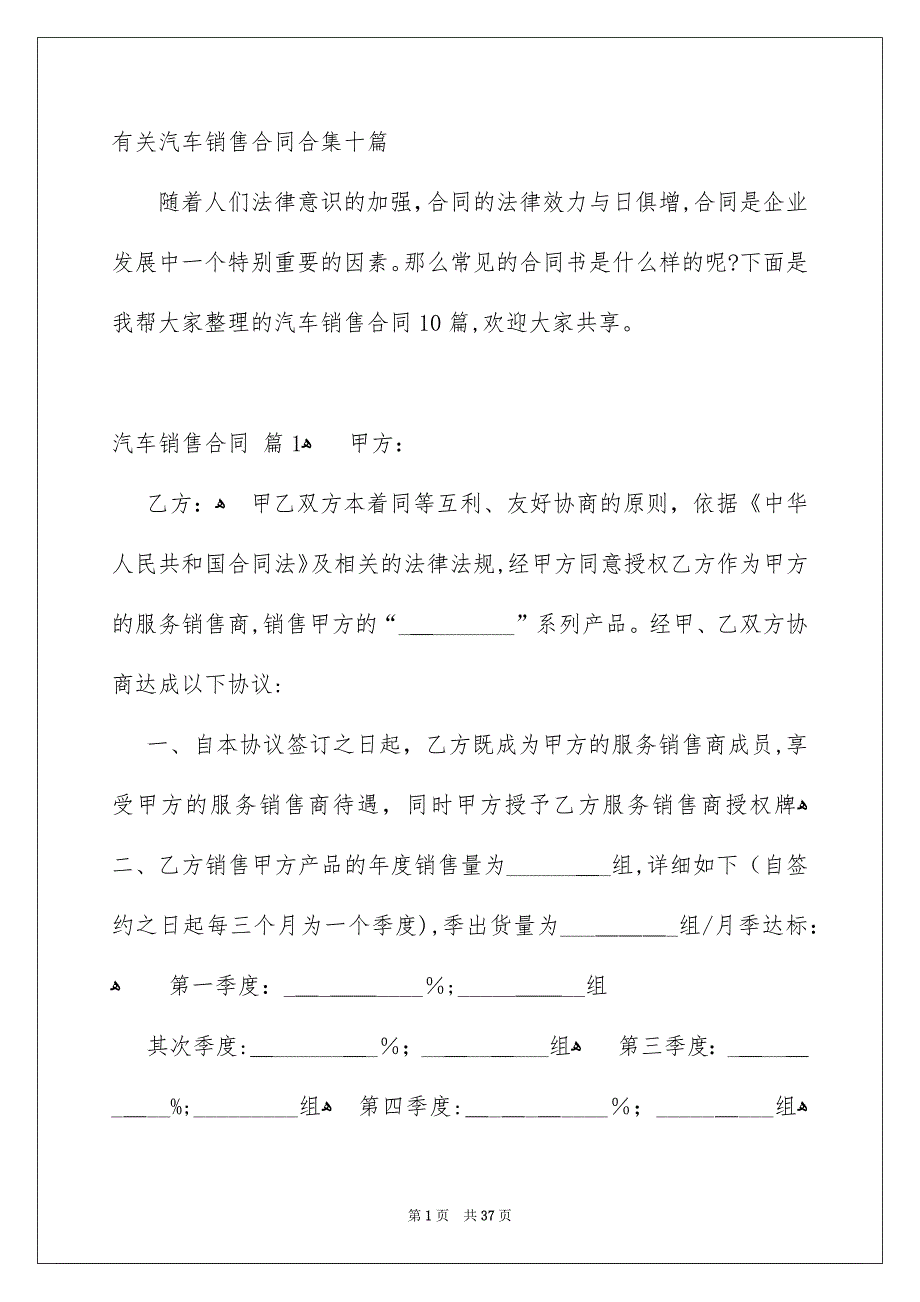 有关汽车销售合同合集十篇
随着人们法律意识的加强，合同的法律效力与日俱增,合同是企业
发展中一个特别重要的因素。那么常见的合同书是什么样的呢?下面是
我帮大家整理的汽车销售合同10篇,欢迎大家共享。
汽车销售合同 篇1ﻫ 甲方：
乙方：ﻫ 甲乙双方本着同等互利、友好协商的原则，依据《中华
人民共和国合同法》及相关的法律法规,经甲方同意授权乙方作为甲方
的服务销售商,销售甲方的“__________”系列产品。经甲、乙双方协
商达成以下协议:
一、自本协议签订之日起，乙方既成为甲方的服务销售商成员,享
受甲方的服务销售商待遇，同时甲方授予乙方服务销售商授权牌ﻫ
二、乙方销售甲方产品的年度销售量为_________组,详细如下（自签
约之日起每三个月为一个季度),季出货量为__________组/月季达标：
ﻫ 第一季度：____________％;___________组
其次季度:___________％；___________组ﻫ 第三季度：_______
_____%;_________组ﻫ 第四季度:____________％；__________组ﻫ
第1页 共37页